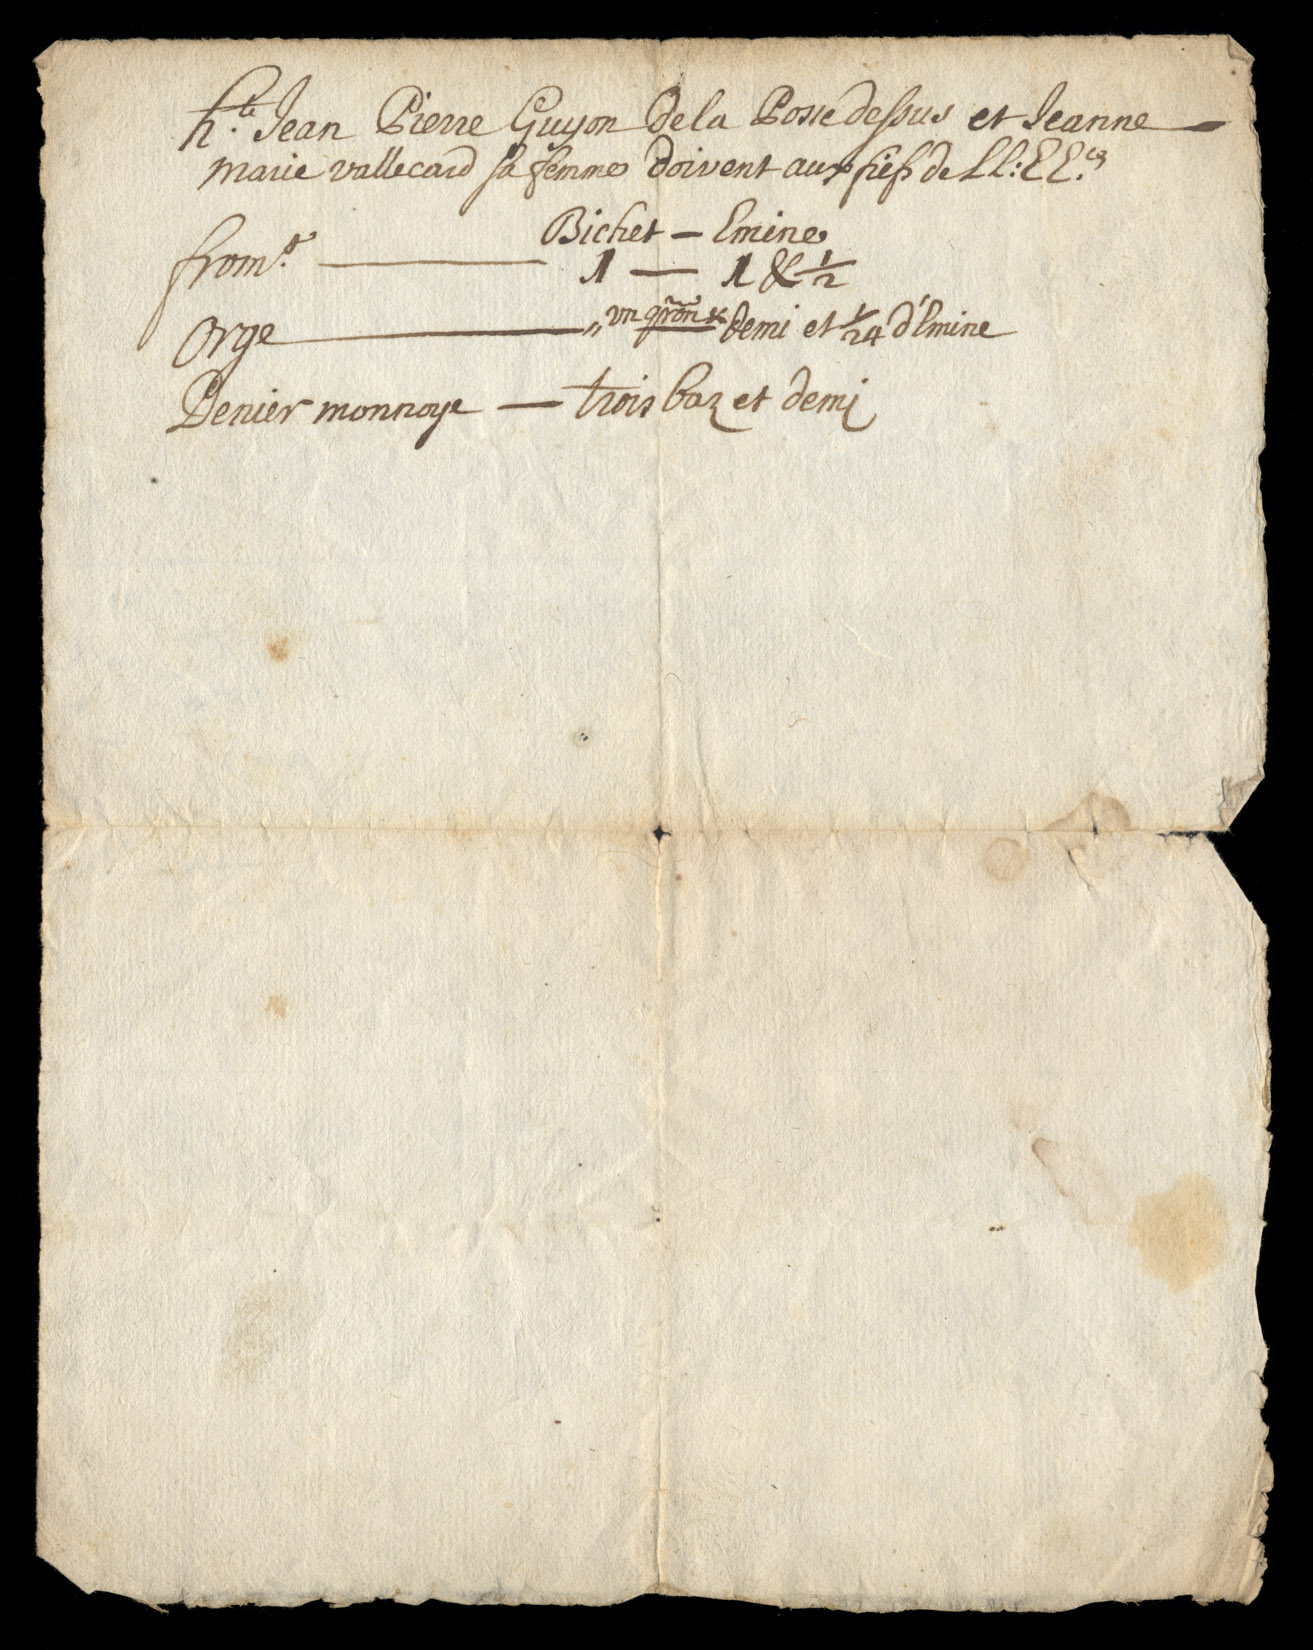 h.te Jean Pierre Guyon de la Posse dessus et Jeanne —
Marie vallecard sa femme doivent aux fiefs de LL: EE.ces
Bichet — Emine
from.t — 1 — 1 & 1/2
Orge — „ un qron & demi et 1/24 d'Emine
Denier monnoye — trois baz et demi